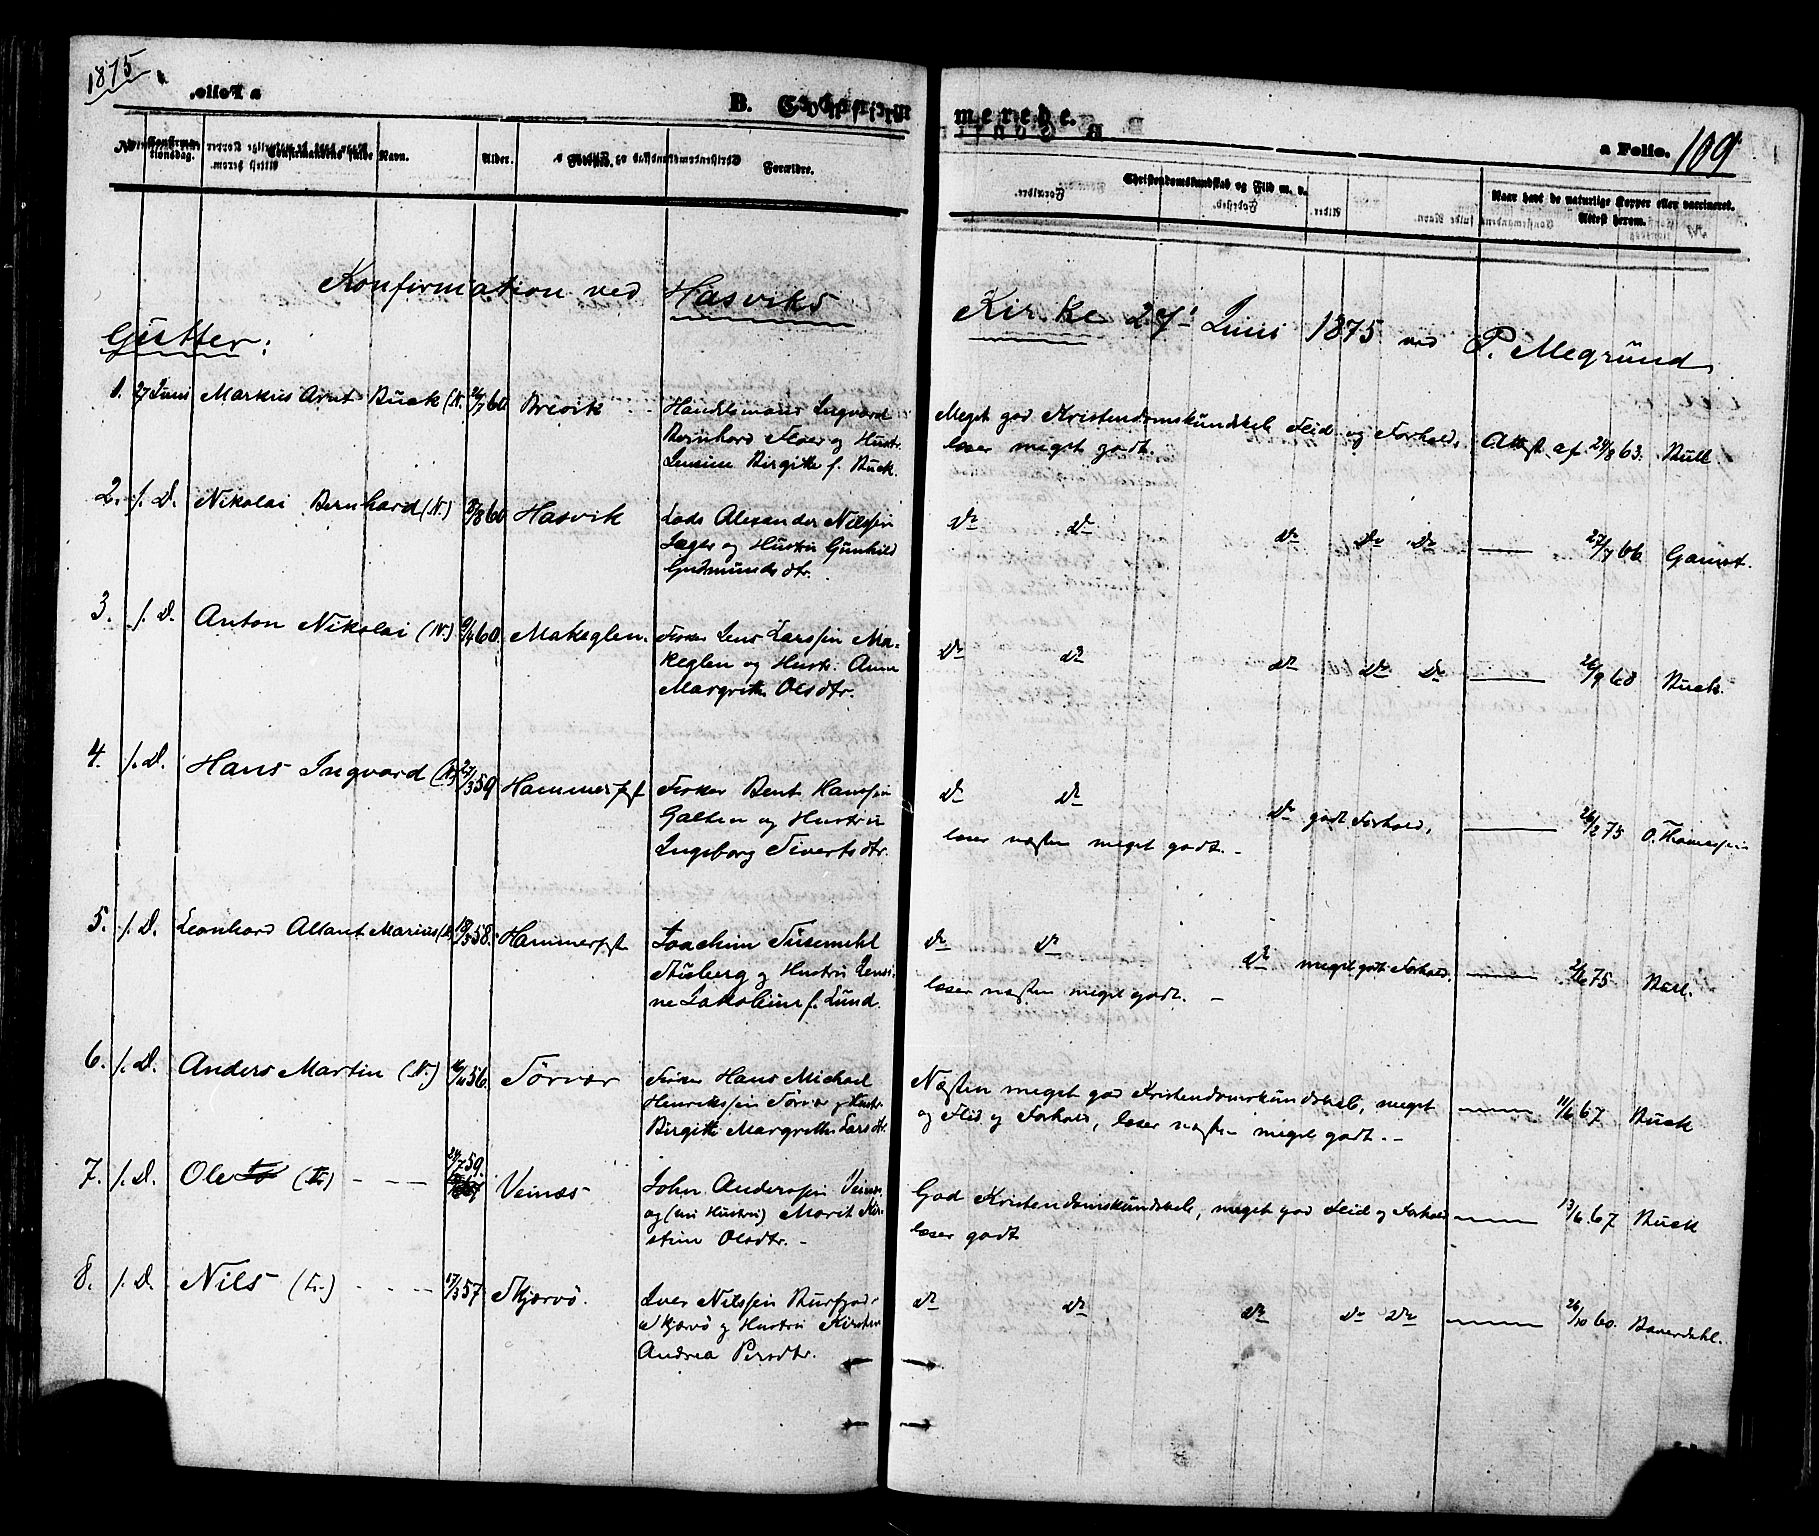 1875
a Folio.
B. Confir
merede.
a Folio. 109
Confirmationsdag.
Confirmandens fulde Navn.
Alder.
Forældre.
Christendomskundskab og Flid m. v.
Naar havt de naturlige Kopper eller vaccineret. Attest herom.
Konfirmation ved Hasviks Kirke 27' Juni 1875 ved P. Megrund
Gutter:
1. 27 Juni Markus Arnt Buck (N. 60 Brevik Handelsmand Ingvard
Bernhard Floer og Hustr.
Jensine Birgitte f. Buck.
Meget god Kristendomskundskab Flid og Forhold,
læser meget godt.
Attest af 29/8 63. Bull
2. f. D. Nikolai Bernhard (N.) 8/8 60 Hasvik Lods Alexander Nilssen
Jæger og Hustru Gunhild
Gudmundsdtr.
Do Do Do Do Do 27/7 66 Gamst.
3. f. D. Anton Nikolai (N.) 60. Makeglen. Fisker Jens Larssen Ma-
keglen og Hustr. Anne
Margrethe Olsdtr.
Do Do Do Do Do 26/9 68 Buck.
4. f. D. Hans Ingvard (N.) 27/3 59 Hammerfest Fisker Bent Hanssen
Galten og Hustru
Ingeborg Sivertsdtr.
Do Do Do godt Forhold,
læser næsten meget godt. -
26/2 75 O. Thomessen
5. f. D. Leonhard Allant Marius (N. 58. Hammerfest Joachim Susemihl
Stuberg og Hustru Jensi-
ne Jakobine f. Lund.
Do Do Do meget godt Forhold.
læser næsten meget godt. -
2/6 75
6. f. D. Anders Martin (N.) 16/11 56. Sørvær Fisker Hans Michael
Henrikssen Sørvær og Hustr.
Birgitte Margrethe Larsdtr.
Næsten meget god Kristendomskundskab, meget
og Flid og Forhold, læser næsten meget godt. -
11/6 67 Buck
7. f. D. Ole 24/7 59. Veinæs John Anderssen Veinæs
og (en Hustru) Marit Kir-
stine Olsdtr. -
God Kristendomskundskab, meget god Flid og Forhold
læser godt
13/6 67 Buck
8. f. D. Nils 17/3 57 Skjærvø. Iver Nilssen Burfjord
Skjærvø og Hustru Kirsten
Andrea Persdtr.
Do Do Do Do Do 26/10 60. Baverdahl.